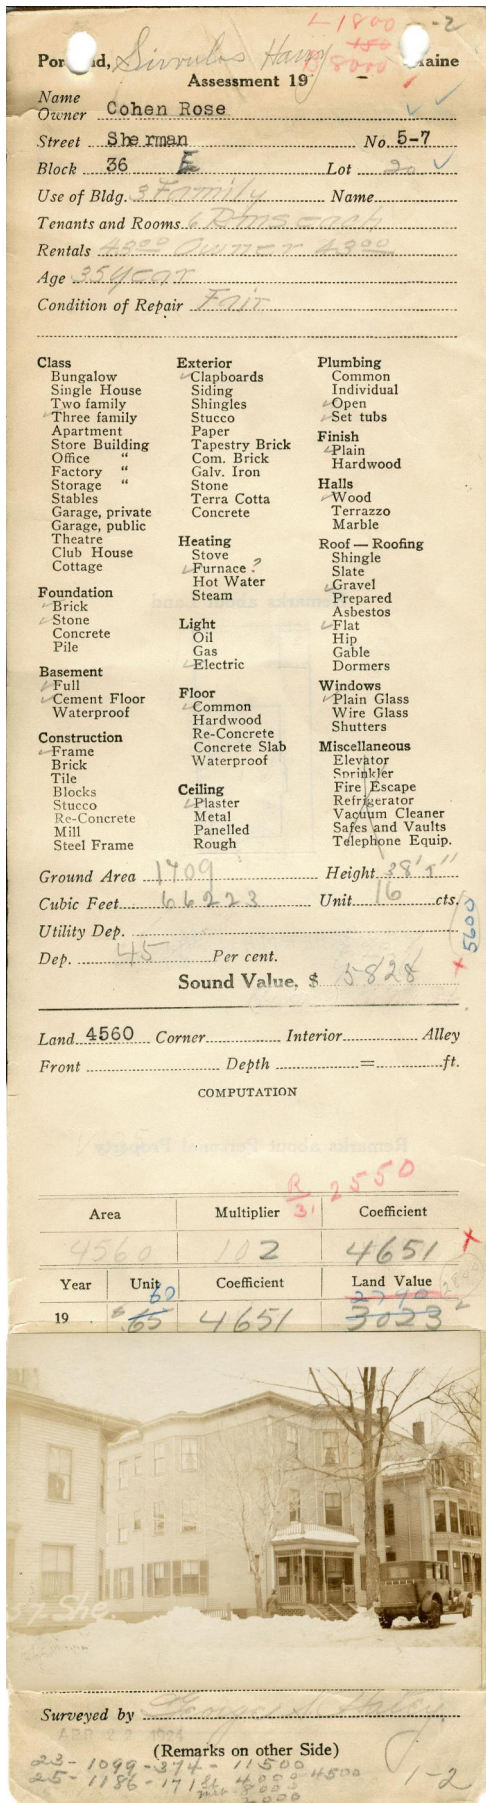 L 1800 -2
150
Portland, Sirrules Harry Maine
B 8000
Assessment 19
Name
Owner Cohen Rose
Street Sherman No. 5-7
Block 36 E Lot 20
Use of Bldg. 3 Family Name
Tenants and Rooms 6 Rms each
Rentals 43.00 Owner 43.00
Age 35 year
Condition of Repair Fair
Class
Bungalow
Single House
Two family
Three family
Apartment
Store Building
Office "
Factory "
Storage "
Stables
Garage, private
Garage, public
Theatre
Club House
Cottage
Foundation
Brick
Stone
Concrete
Pile
Basement
Full
Cement Floor
Waterproof
Construction
Frame
Brick
Tile
Blocks
Stucco
Re-Concrete
Mill
Steel Frame
Exterior
Clapboards
Siding
Shingles
Stucco
Paper
Tapestry Brick
Com. Brick
Galv. Iron
Stone
Terra Cotta
Concrete
Heating
Stove
Furnace ?
Hot Water
Steam
Light
Oil
Gas
Electric
Floor
Common
Hardwood
Re-Concrete
Concrete Slab
Waterproof
Ceiling
Plaster
Metal
Panelled
Rough
Plumbing
Common
Individual
Open
Set tubs
Finish
Plain
Hardwood
Halls
Wood
Terrazzo
Marble
Roof — Roofing
Shingle
Slate
Gravel
Prepared
Asbestos
Flat
Hip
Gable
Dormers
Windows
Plain Glass
Wire Glass
Shutters
Miscellaneous
Elevator
Sprinkler
Fire Escape
Refrigerator
Vacuum Cleaner
Safes and Vaults
Telephone Equip.
Ground Area 1709 Height 38' 1"
Cubic Feet 66223 Unit 16 cts.
Utility Dep.
5600
Dep. 45 Per cent.
Sound Value, $ 5828
Land 4560 Corner Interior Alley
Front Depth = ft.
COMPUTATION
R 2550
31
Area Multiplier Coefficient
4560 102 4651
Year Unit Coefficient Land Value
60 2790
19 65 4651 3023
57. She.
Surveyed by
(Remarks on other Side)
23 - 1099 - 374 - 11500
25 - 1186 - 171 4000 4500
8000
1-2